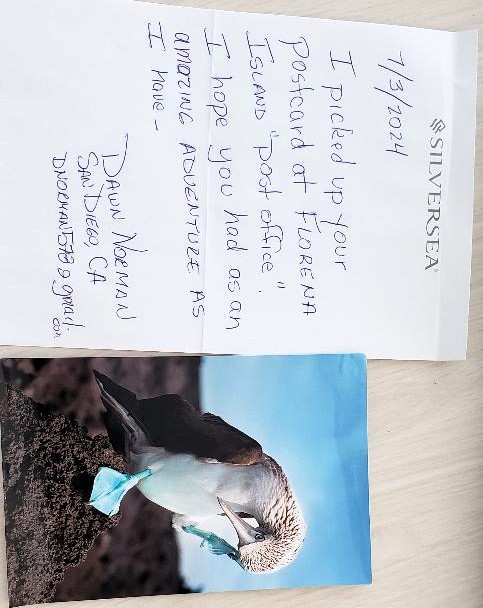 SILVERSEA®
7/3/2024
I picked up your
Postcard at FLORENA
ISLAND "post office".
I hope you had as an
amazing ADVENTURE AS
I have -
DAWN NORMAN
SAN DIEGO, CA
DNORMAN578@gmail.
com